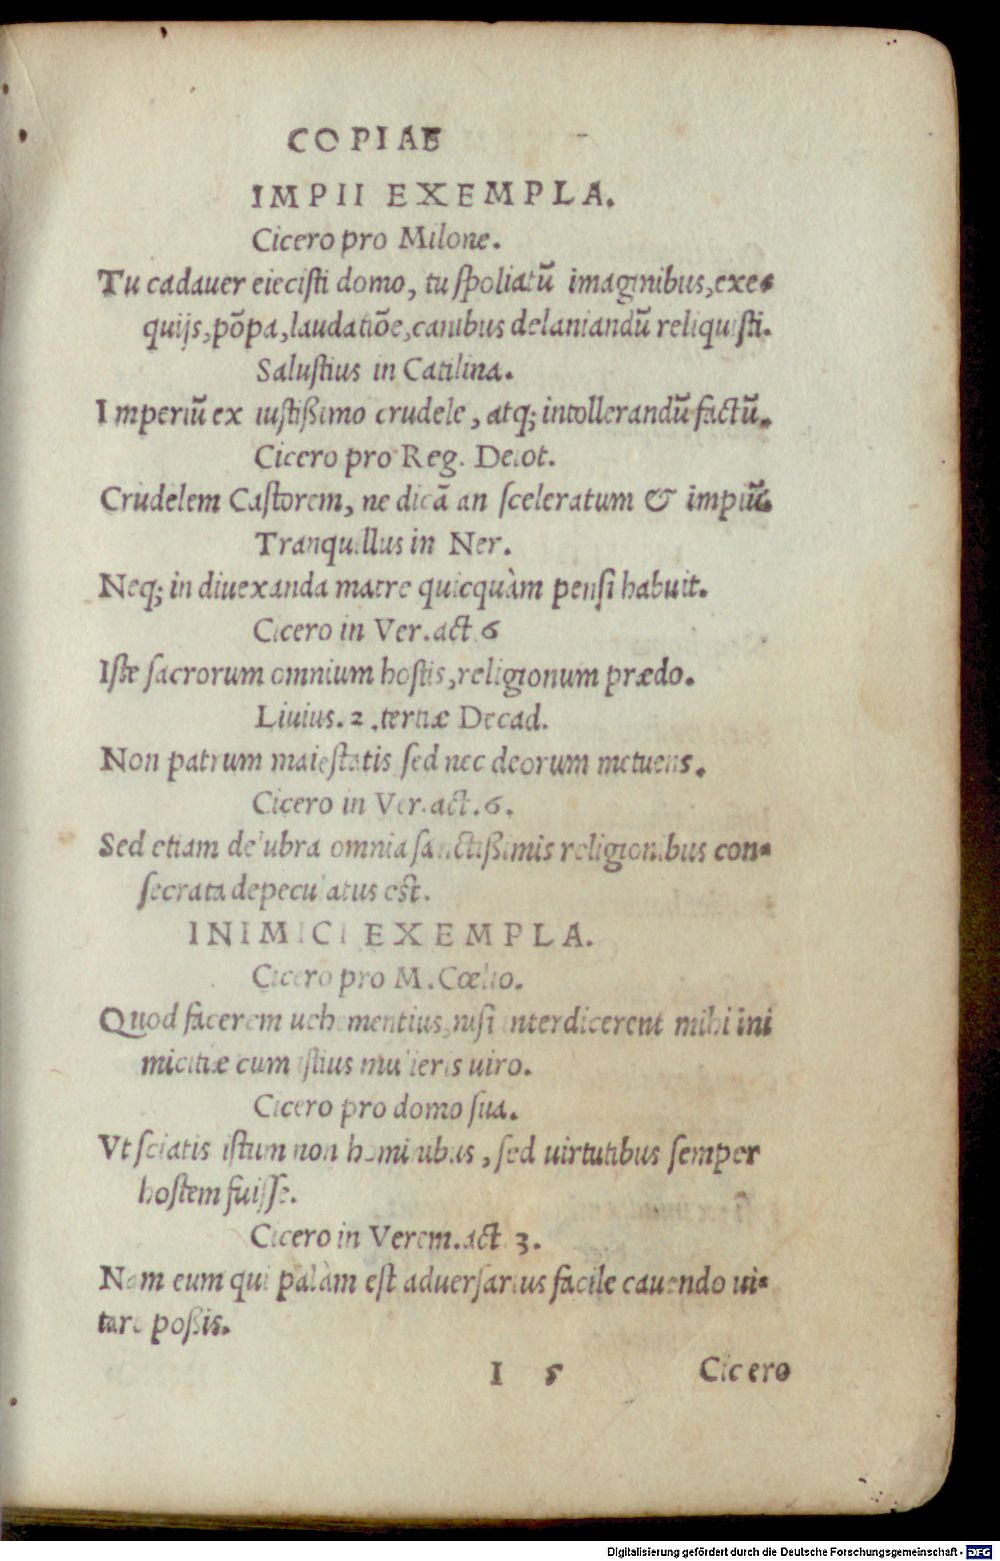 COPIAE
IMPII EXEMPLA.
Cicero pro Milone.
Tu cadauer eiecisti domo, tu spoliatũ imaginibus, exe-
quijs, põpa, laudatiõe, canibus delaniandũ reliquisti.
Salustius in Catilina.
Imperiũ ex iustißimo crudele, atq; intollerandũ factũ.
Cicero pro Reg. Deiot.
Crudelem Castorem, ne dicã an sceleratum & impiũ.
Tranquillus in Ner.
Neq; in diuexanda matre quicquàm pensi habuit.
Cicero in Ver. act 6
Iste sacrorum omnium hostis, religionum prædo.
Liuius. 2. tertiæ Decad.
Non patrum maiestatis sed nec deorum metuens.
Cicero in Ver. act. 6.
Sed etiam delubra omnia sanctißimis religionibus con-
secrata depeculatus est.
INIMICI EXEMPLA.
Cicero pro M. Cœlio.
Quod facerem uehementius, nisi interdicerent mihi ini
micitiæ cum istius mulieris uiro.
Cicero pro domo sua.
Vt sciatis istum non hominibus, sed uirtutibus semper
hostem fuisse.
Cicero in Verem. act 3.
Nam eum qui palàm est aduersarius facile cauendo ui-
tare poßis.
I 5 Cicero
Digitalisierung gefördert durch die Deutsche Forschungsgemeinschaft - DFG